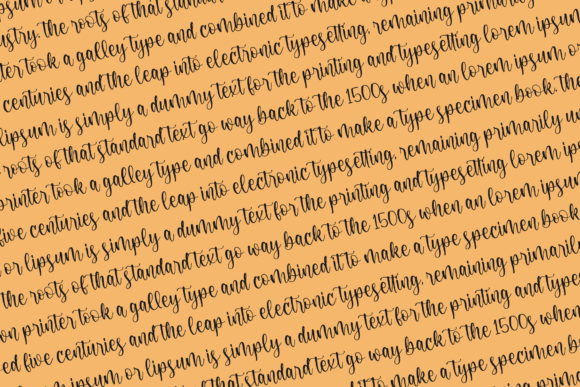 ipsum or lipsum
ustry. the roots of that standard
printer took a galley type and combined it to make a
centuries and the leap into electronic typesetting, remaining primarily
lipsum is simply a dummy text for the printing and typesetting lorem ipsum
roots of that standard text go way back to the 1500s when an lorem ipsum or
printer took a galley type and combined it to make a type specimen book. the
five centuries and the leap into electronic typesetting, remaining primarily un
or lipsum is simply a dummy text for the printing and typesetting lorem ips
the roots of that standard text go way back to the 1500s when an lorem ipsum
on printer took a galley type and combined it to make a type specimen book.
ed five centuries and the leap into electronic typesetting, remaining primarily
ipsum or lipsum is simply a dummy text for the printing and types
the roots of that standard text go way back to the 1500s when
printer took a galley type and combined it to make a type specimen bo
the leap into electronic typesetting, remaining
a dummy text for the printing
go way back to the